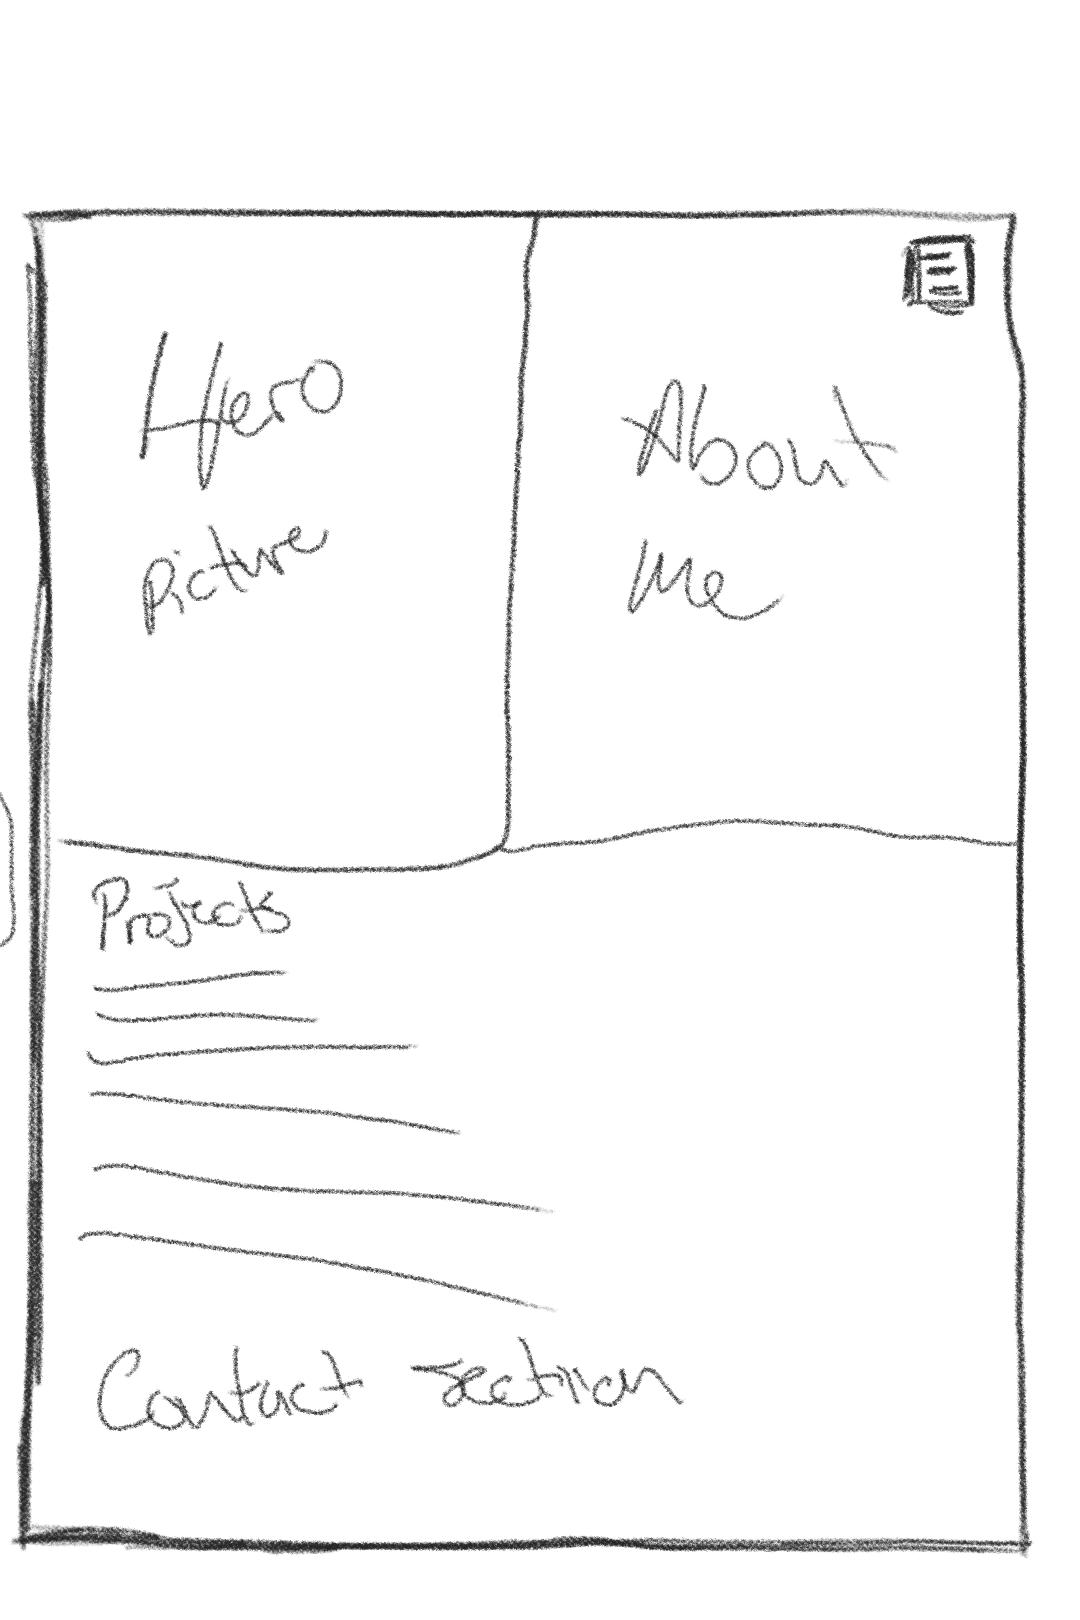 Hero
Picture
About
Me
Projects
Contact section